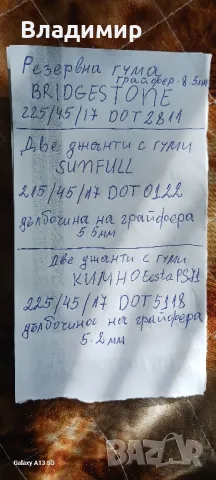 Владимир
Резервна гума
грайфер. 8.5мм
BRIDGESTONE
225/45/17 DOT2811
Две джанти с гуми
SUNFULL
215/45/17 DOT0122
дълбочина на грайфера
5.5мм
Две джанти с гуми
KUMHO Ecsta PS71
225/45/17 DOT5118
дълбочина на грайфера
5.2мм
Galaxy A13 5G
bazar
БГ